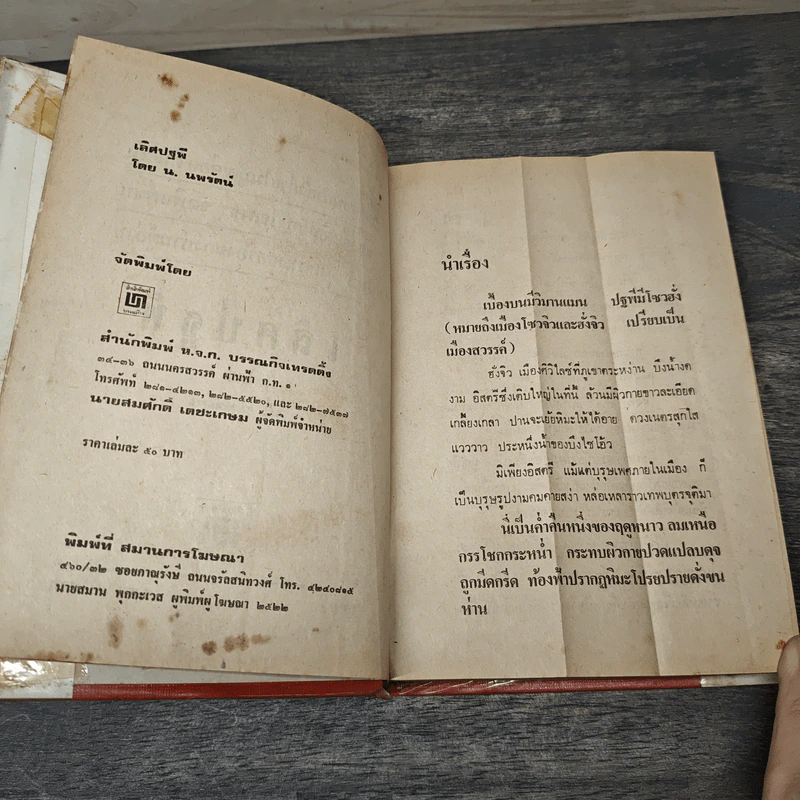 เลิศปฐพี
โดย น. นพรัตน์
จัดพิมพ์โดย
สำนักพิมพ์ ห.จ.ก. บรรณกิจเทรดดิ้ง
๓๔-๓๖ ถนนนครสวรรค์ ผ่านฟ้า ก.ท. ๑
โทรศัพท์ ๒๘๑-๔๒๑๓, ๒๘๒-๕๕๒๐, และ ๒๘๒-๗๕๓๗
นายสมศักดิ์ เตชะเกษม ผู้จัดพิมพ์จำหน่าย
ราคาเล่มละ ๕๐ บาท
พิมพ์ที่ สมานการโฆษณา
๔๖๐/๓๒ ซอยภาณุรังษี ถนนจรัลสนิทวงศ์ โทร. ๔๒๔๐๘๑๕
นายสมาน พุกกะเวส ผู้พิมพ์ผู้โฆษณา ๒๕๒๒
นำเรื่อง
เบื้องบนมีวิมานแมน ปฐพีมีโซวฮั้ง
(หมายถึงเมืองโซวจิวและฮั่งจิว เปรียบเป็น
เมืองสวรรค์)
ฮั่งจิว เมืองศิวิไลซ์ที่ภูเขาตระหง่าน บึงน้ำงด
งาม อิสตรีซึ่งเติบใหญ่ในที่นี้ ล้วนมีผิวกายขาวละเอียด
เกลี้ยงเกลา ปานจะเย้ยหิมะให้ได้อาย ดวงเนตรสุกใส
แวววาว ประหนึ่งน้ำของบึงไซโอ้ว
มิเพียงอิสตรี แม้แต่บุรุษเพศภายในเมือง ก็
เป็นบุรุษรูปงามคมคายสง่า หล่อเหลาราวเทพบุตรจุติมา
นี่เป็นค่ำคืนหนึ่งของฤดูหนาว ลมเหนือ
กรรโชกกระหน่ำ กระทบผิวกายปวดแปลบดุจ
ถูกมีดกรีด ท้องฟ้าปรากฏหิมะโปรยปรายดั่งขน
ห่าน